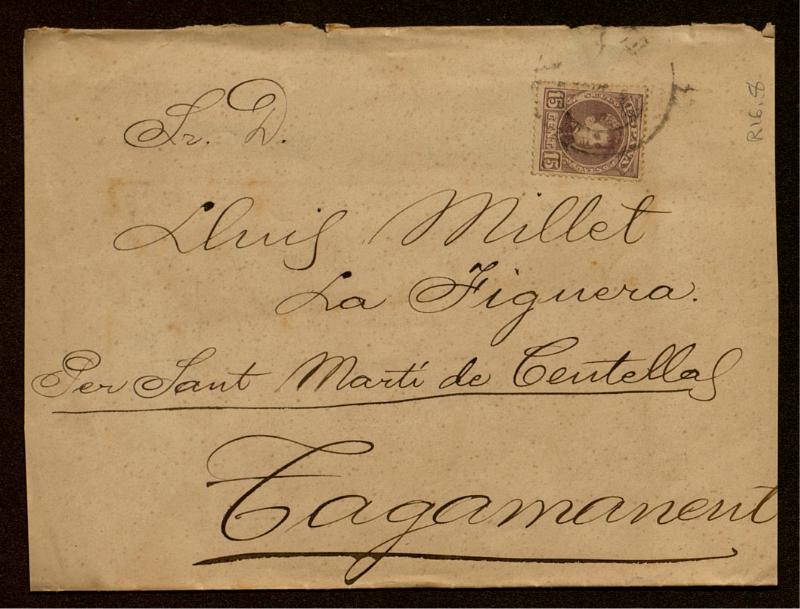 Sr. D.
Lluis Millet
La Figuera.
Per Sant Martí de Centellas
Tagamanent
ESPAÑA
15 CENT. 15
R16.8